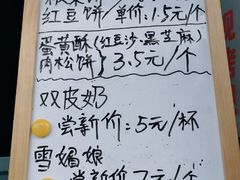 红豆饼 单价:1.5元/个
蛋黄酥(红豆沙.黑芝麻)
肉松饼 } 3.5元/个
双皮奶
尝新价:5元/杯
雪媚娘
尝新价:7元/个